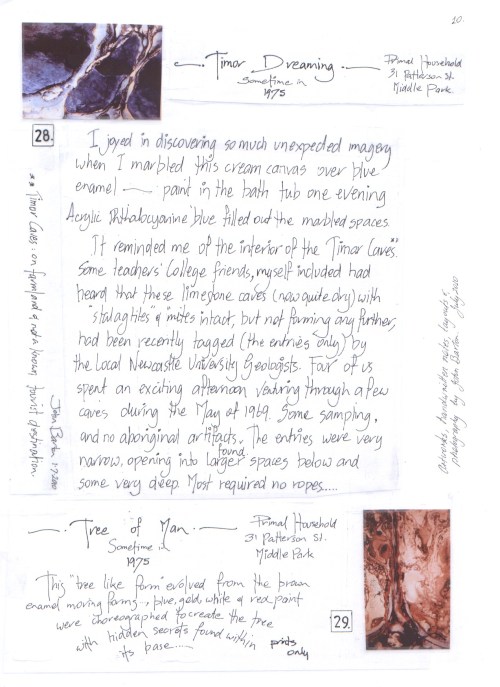 10.
Timor Dreaming
Sometime in
1975
Primal Household
31 Patterson St.
Middle Park
28.
I joyed in discovering so much unexpected imagery
when I marbled this cream canvas over blue
enamel — paint in the bath tub one evening
Acrylic Phthalocyanine blue filled out the marbled spaces.
It reminded me of the interior of the Timor Caves**.
Some teachers' College friends, myself included had
heard that these limestone caves (now quite dry) with
"stalagtites" & "mites intact, but not forming any further,
had been recently tagged (the entries only) by
the Local Newcastle University Geologists. Four of us
spent an exciting afternoon venturing through a few
caves during the May of 1969. Some sampling,
and no aboriginal artifacts found. The entries were very
narrow, opening into larger spaces below and
some very deep. Most required no ropes.....
** Timor Caves: on farmland & not a known tourist destination.
John Barton 1-7-2010
Artworks, handwritten notes, layouts &
photography by John Barton July 2010
Tree of Man
Sometime in
1975
Primal Household
31 Patterson St.
Middle Park
This "tree like form" evolved from the brown
enamel moving forms.., blue, gold, white & red paint
were choreographed to create the tree
with hidden secrets found within
its base.....
prints
only
29.